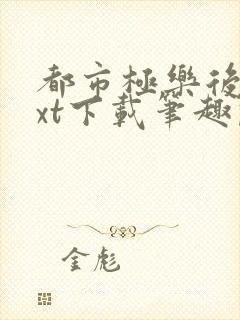 都市極樂後
xt下載筆趣
金彪